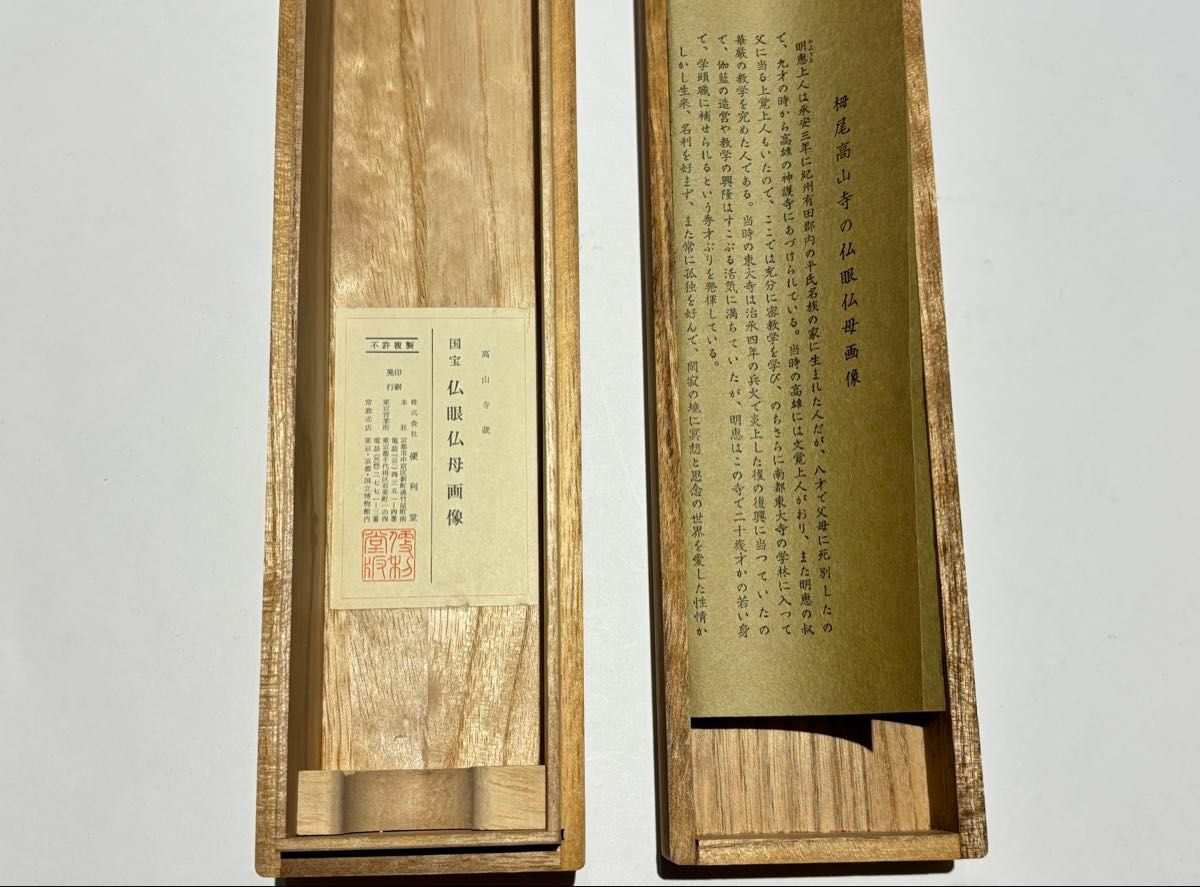 高山寺蔵
国宝 仏眼仏母画像
不許複製
印刷
発行
株式会社 便利堂
本社 京都市中京区新町通竹屋町南
電話(三)四三五一—四番
東京営業所 東京都千代田区有楽町一の四
常設売店 東京・京都・国立博物館内
便利堂版
栂尾高山寺の仏眼仏母画像
みょうえ
明恵上人は承安三年に紀州有田郡内の平氏名族の家に生まれた人だが、八才で父母に死別したの
で、九才の時から高雄の神護寺にあづけられている。当時の高雄には文覚上人がおり、また明恵の叔
父に当る上覚上人もいたので、ここでは充分に密教学を学び、のちさらに南都東大寺の学林に入って
華厳の教学を究めた人である。当時の東大寺は治承四年の兵火で炎上した後の復興に当っていたの
で、伽藍の造営や教学の興隆はすこぶる活気に満ちていたが、明恵はこの寺で二十幾才かの若い身
で、学頭職に補せられるという秀才ぶりを発揮している。
しかし生来、名利を好まず、また常に孤独を好んで、閑寂の境に冥想と思念の世界を愛した性情か